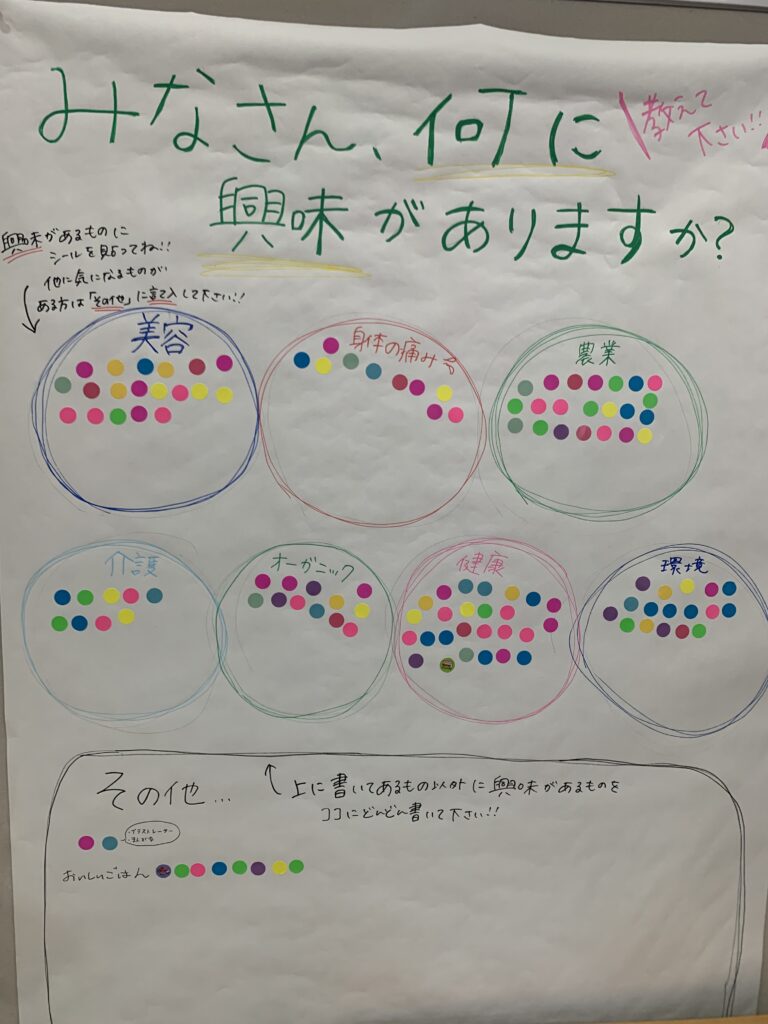 みなさん、何に
教えて
下さい!!
興味がありますか?
興味があるものに
シールを貼ってね!!
他に気になるものが
ある方は「その他」に記入して下さい!!
美容
身体の痛み
農業
介護
オーガニック
健康
環境
その他…
上に書いてあるもの以外に興味があるものを
ココにどんどん書いて下さい!!
・イラストレーター
・まんが家
おいしいごはん